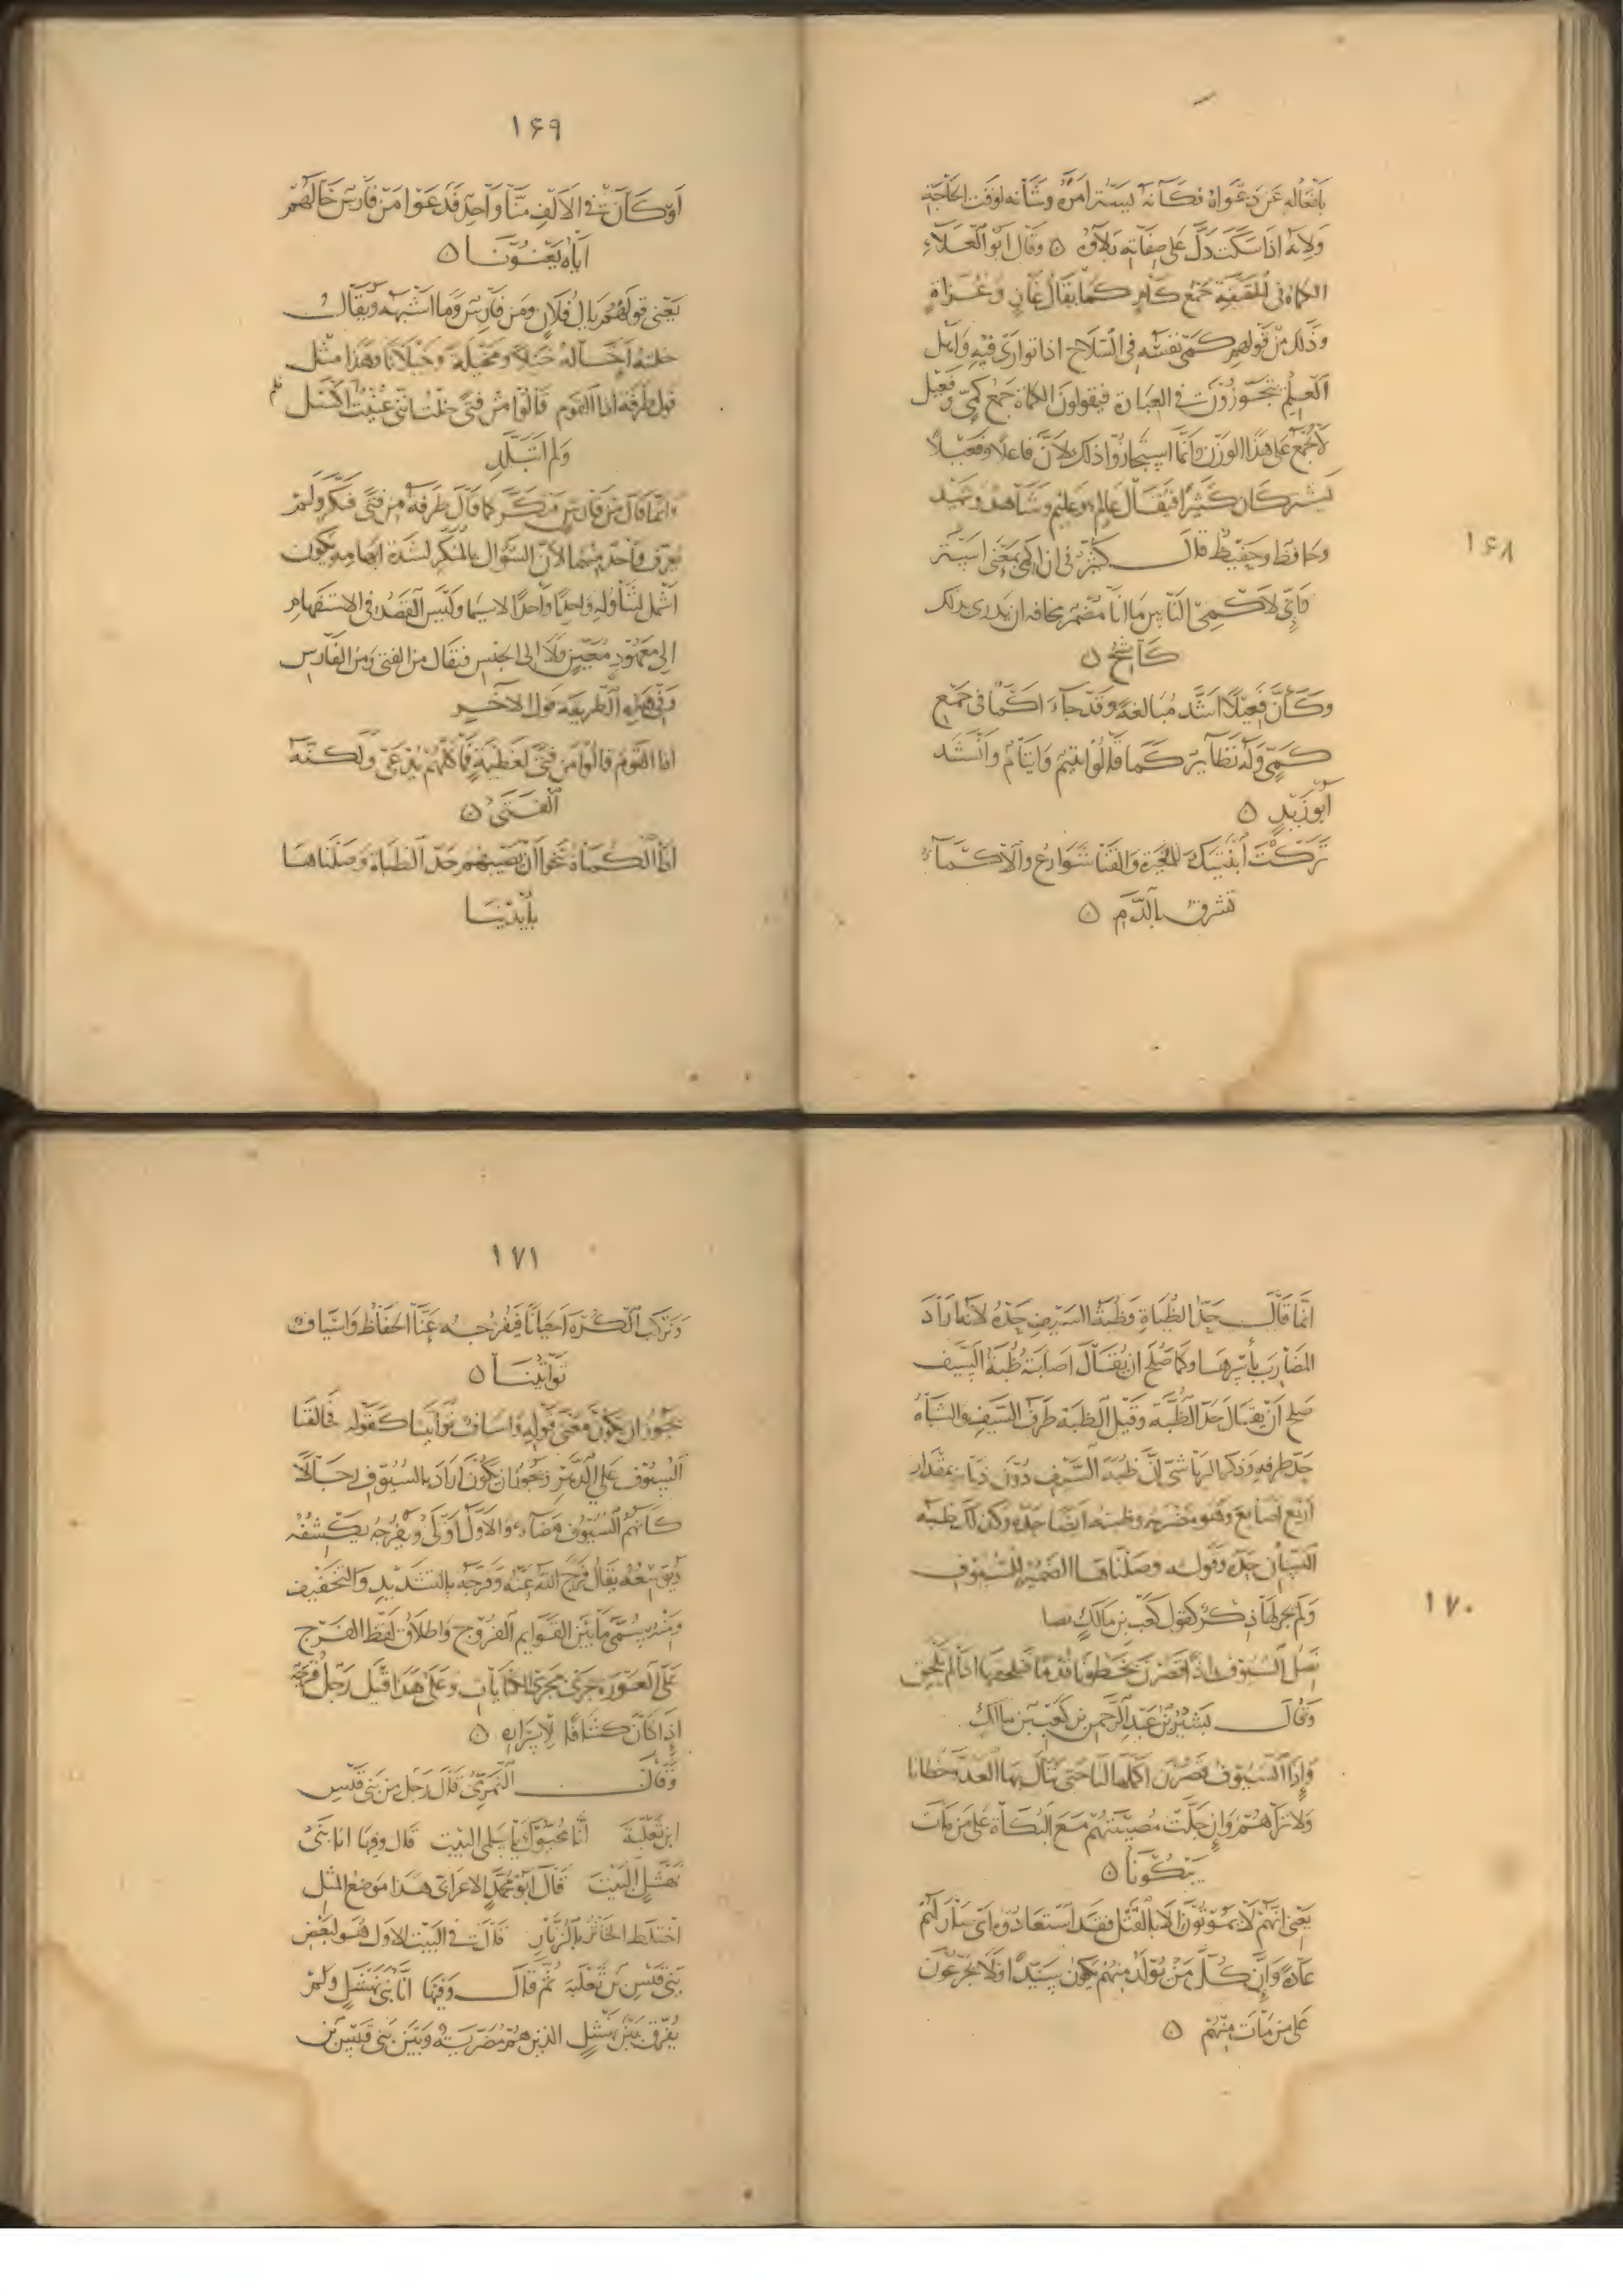 ١۶٨
بافعاله عن دعواه فكانه يستر امره وشانه لوقت الحاجة
ولانه اذا سكت دل على صفاته بلاؤه ۞ وقال ابو العلاء
الكماة في الحقيقة جمع كام كما يقال غاز وغزاة
وذلك من قولهم كمى نفسه في السلاح اذا توارى فيه واهل
العلم يتجوزون في العبارة فيقولون الكماة جمع كمي وفعيل
لا يجمع على هذا الوزن وانما استجازوا ذلك لان فاعلا وفعيلا
يشتركان كثيرا فيقال عالم وعليم وشاهد وشهيد
وحافظ وحفيظ قال كثير في ان اكمي بمعنى استر
فاني لاكمي الناس ما انا مضمر مخافة ان يدرى بذلك
كاشح ۞
وكان فعيلا اشد مبالغة وقد جاء اكماء في جمع
كمي وله نظائر كما قالوا يتيم وايتام وانشد
ابو زبيد ۞
تركت ابنتيك للمغيرة والقنا شوارع والاكماء
تشرق بالدم ۞
١۶٩
او كان في الالف منا واحد فدعوا من فارس خالهم
اياه يعنونا ۞
يعني قولهم يال فلان ومن فارس وما اشبهه ويقال
خلته اخاله خيلا ومخيلة وخيلانا وهذا مثل
قول طرفة اذا القوم قالوا من فتى خلت انني عنيت فلم اكسل
ولم اتبلد
وانما قال من فارس منكر كما قال طرفة من فتى فنكر ولم
يعرف واحد منهما لان السؤال بالمنكر لشدة ابهامه يكون
اشمل لتناوله واحدا واحدا لا سيما وليس القصد في الاستفهام
الى معهود معين ولا الى الجنس فيقال من الفتى ومن الفارس
وفي هذه الطريقة قول الاخر
اذا القوم قالوا من فتى لعظيمة فما كلهم يدعى ولكنه
الفتى ۞
اذا الكماة تنحوا ان يصيبهم حد الظباة وصلناها
بايدينا
١٧٠
انما قال حد الظباة وظبة السيف حده لانه اراد
المضارب باسرها وكما صلح ان يقال اصابته ظبة السيف
صلح ان يقال حد الظبة وقيل الظبة طرف السيف والشباة
حد طرفه وذكر الرياشي ان ظبة السيف دون ذبابه بمقدار
اربع اصابع وهو مضربه وظبته ايضا حده وكذلك ظبة
السنان حده وقوله وصلناها الضمير للسيوف
ولم يجر لها ذكر كقول كعب بن مالك
نصل السيوف اذا قصرن بخطونا قدما ونلحقها اذا لم تلحق
وقال بشير بن عبد الرحمن بن كعب بن مالك
واذا السيوف قصرن اكملها لنا حتى تنال بها العدو خطانا
ولا تراهم وان جلت مصيبتهم مع البكاة على من مات
يبكونا ۞
يعني انهم لا يموتون الا بالقتل فقد استعادوه اي صار لهم
عادة وان كل من تولد منهم يكون سيدا فلا يجزعون
على من مات منهم ۞
١٧١
ونركب الكره احيانا فيفرجه عنا الحفاظ واسياف
تواتينا ۞
يجوز ان يكون معنى قوله واسياف تواتينا كقوله فحالفنا
السيوف على الدهر ويجوز ان يكون اراد بالسيوف رجالا
كانهم السيوف مضاء والاول اولى ويفرجه يكشفه
ويوسعه يقال فرج الله عنه وفرجه بالتشديد والتخفيف
ومنه يسمى ما بين القوائم الفروج واطلاق لفظ الفرج
على العورة جرى مجرى الكنايات وعلى هذا قيل رجل فرجة
اذا كان كشافا لاسراره ۞
وقال النمري قال رجل من بني قيس
ابن ثعلبة انا محيوك يا سلمى البيت قال وفيها انا بني
نهشل البيت قال ابو محمد الاعرابي هذا موضع المثل
اختلط الخاثر بالزباد قال في البيت الاول هو لبعض
بني قيس بن ثعلبة ثم قال وفيها انا بني نهشل ولم
يفرق بين نهشل الذين هم مضرية وبين بني قيس بن